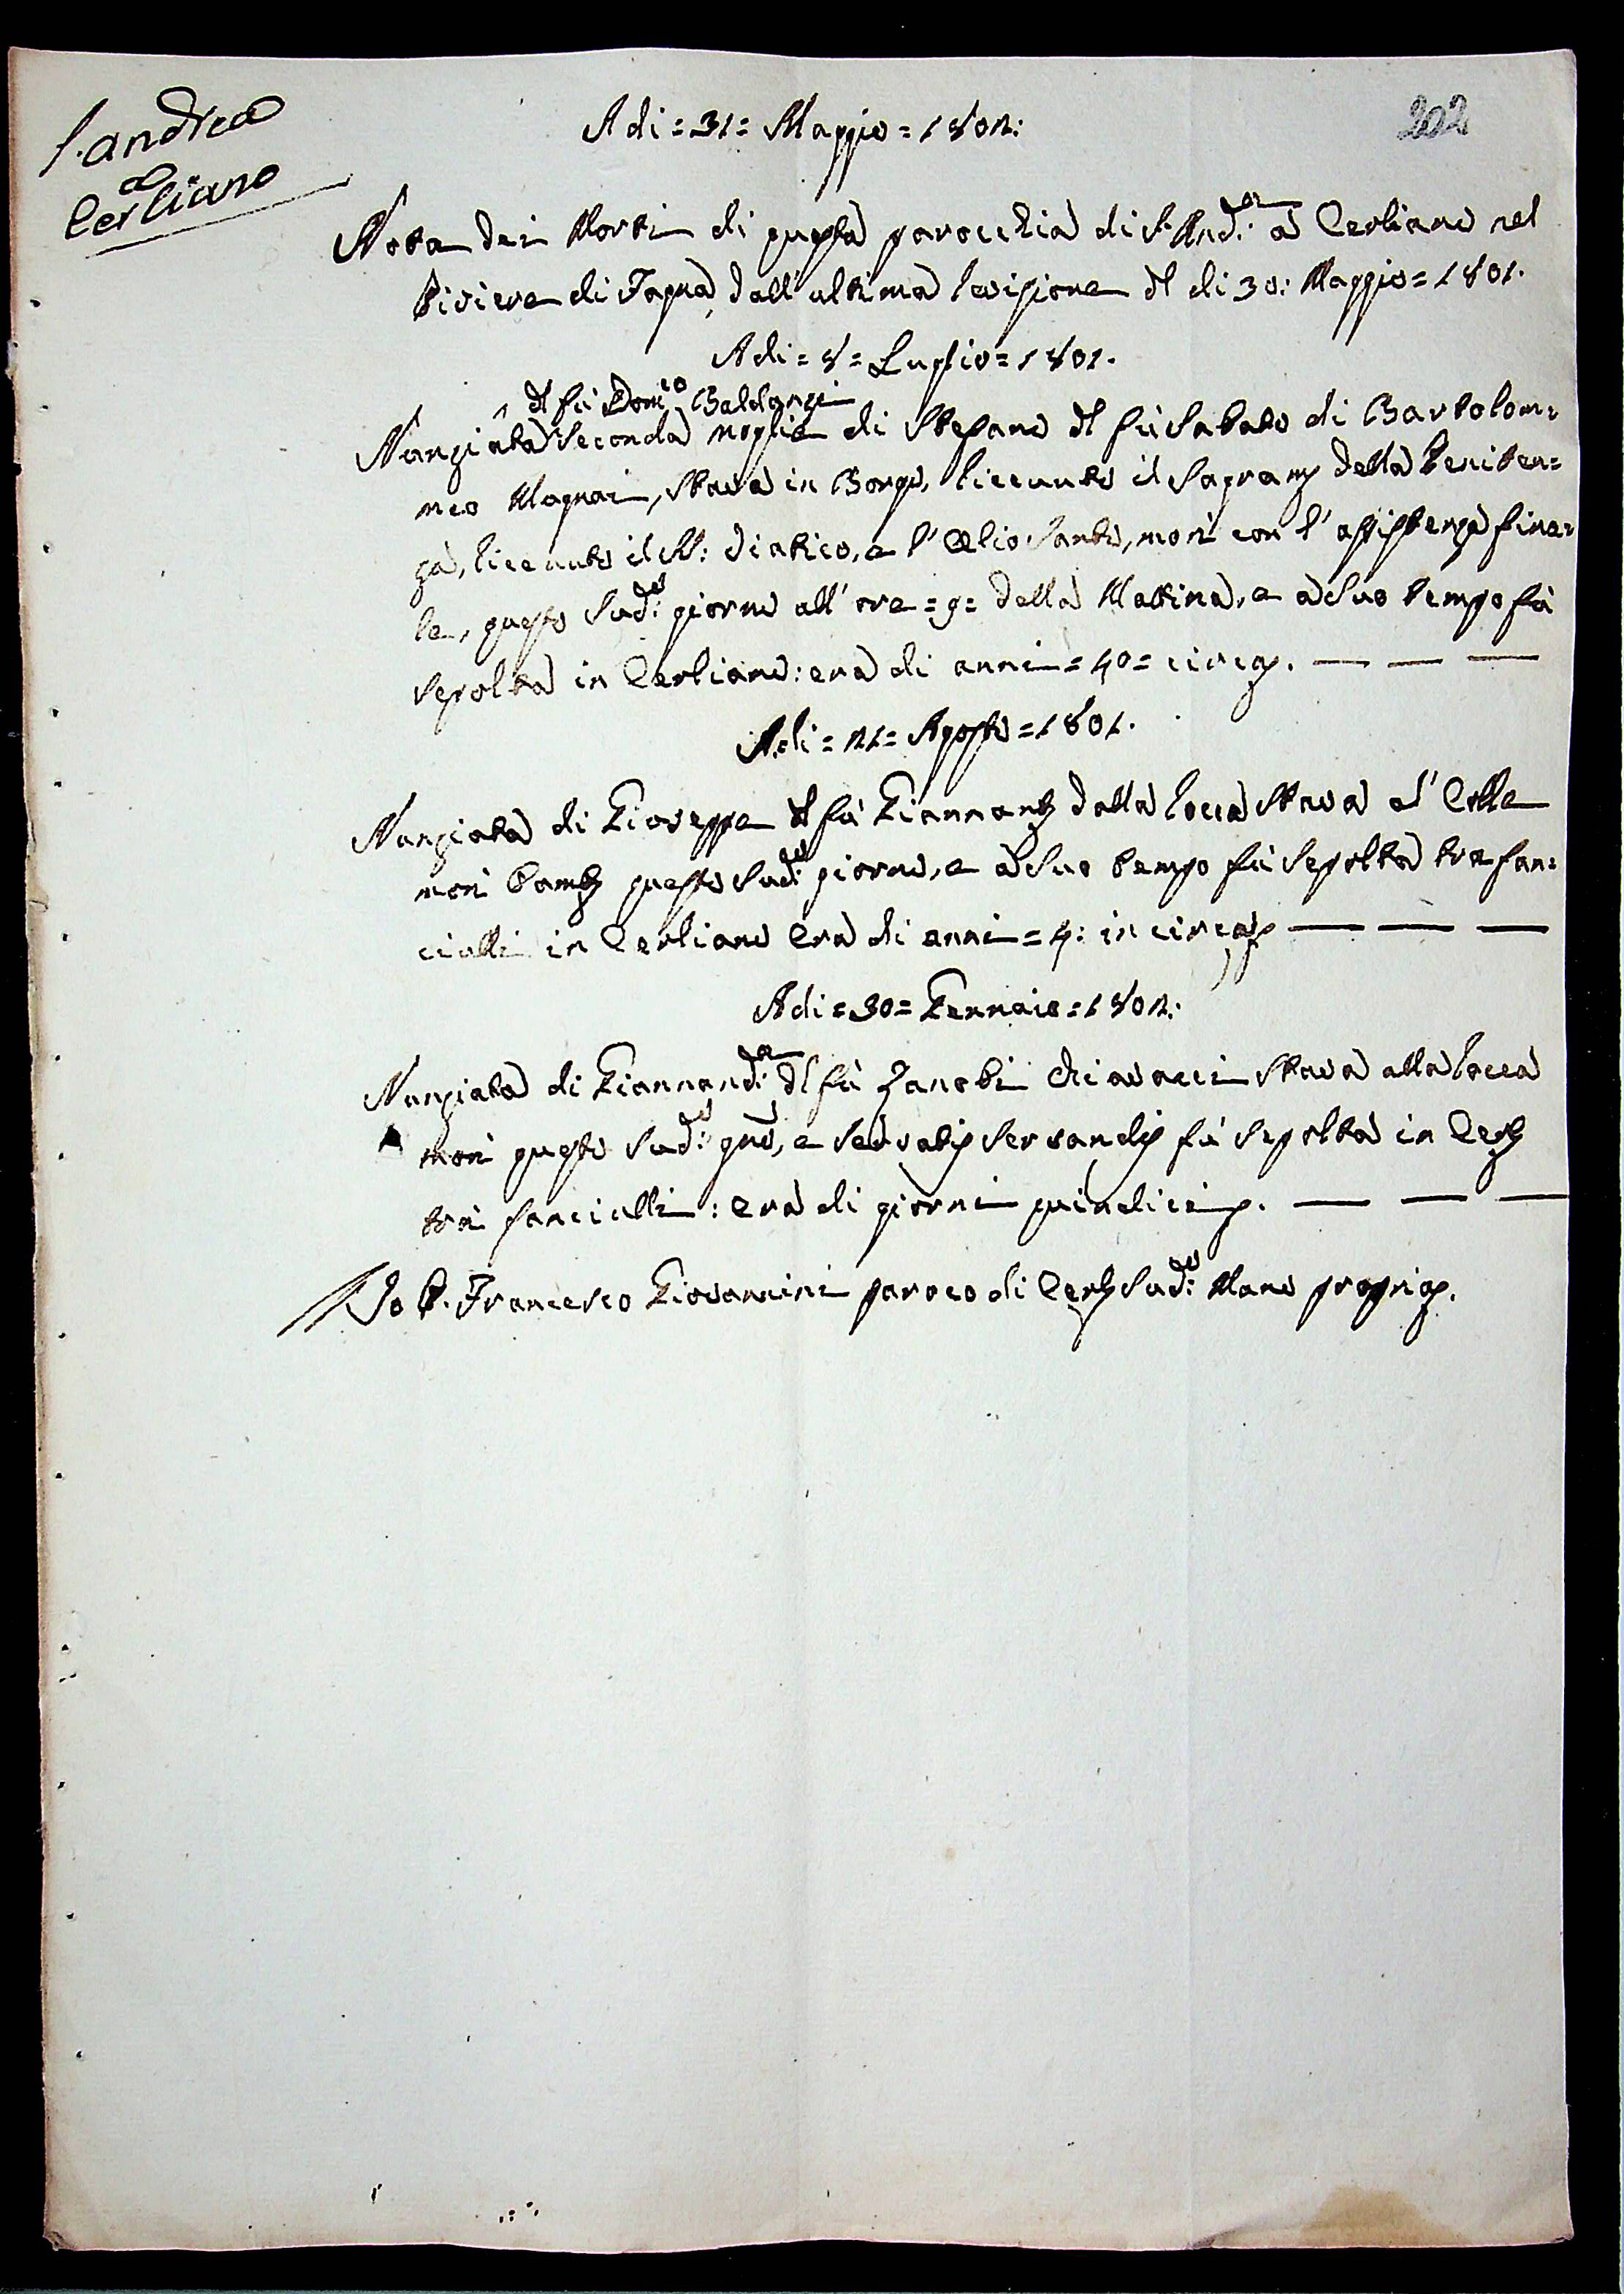 S. Andrea
a
Cerliano
202
Adi = 31 = Maggio = 1802:
Nota dei Morti di questa parocchia di S. And:ea a Cerliano nel
Piviere di Fagna, dall' ultima revisione dl di 30: Maggio = 1801.
Adi = 8 = Luglio = 1801.
^ dl fù Dom:co Baldanzi
Nunziata Seconda moglie di Stefano dl fù Sabato di Bartolom=
meo Magnai, stava in Borgo, riceuuto il Sagram della Peniten=
za, riceuuto il SS: Viatico, e l' Olio Santo, morì con l' assistenza fina=
le, questo Sud:o giorno all' ore = 9 = della Mattina, e a suo tempo fù
sepolta in Cerliano: era di anni = 40 = circa. — — —
Adi = 21 = Agosto = 1801.
Nunziata di Gioseppe dl fù Giannant della Rocca stava al' Colle
morì questo Sud:o giorno, e a suo tempo fù sepolta tra fan=
ciulli in Cerliano era di anni = 4: in circa — — —
Adi = 30 = Gennaio = 1802:
Nunziata di Giannand:ea dl fù Zanobi Chiavacci stava alla Rocca
morì questo Sud:o gno, e servatis servandis fù sepolta in Cerl
trà fanciulli: era di giorni quindici. — — —
Io P. Francesco Giovannini paroco di Cerl Sud:o Mano propria.